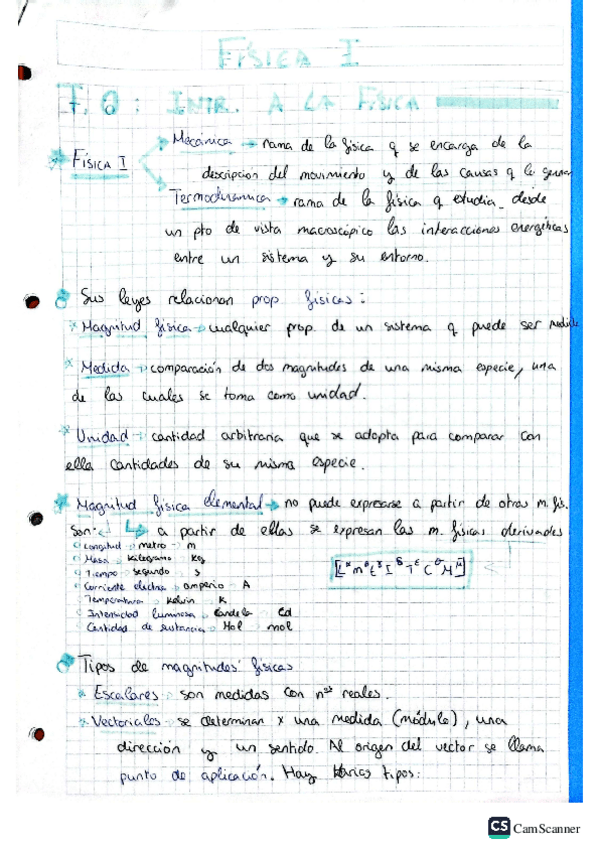 FÍSICA I
T. 0: INTR. A LA FÍSICA
Física I
Mecánica → rama de la física q se encarga de la
descripción del movimiento y de las causas q lo generan
Termodinámica → rama de la física q estudia desde
un pto de vista macroscópico las interacciones energéticas
entre un sistema y su entorno.
Sus leyes relacionan prop. físicas:
Magnitud física → cualquier prop. de un sistema q puede ser medida
Medida → comparación de dos magnitudes de una misma especie, una
de las cuales se toma como unidad.
Unidad → cantidad arbitraria que se adopta para comparar con
ella cantidades de su misma especie.
Magnitud física elemental → no puede expresarse a partir de otras m. fís.
Son: a partir de ellas se expresan las m. físicas derivadas
Longitud → metro → m
Masa → Kilogramo → Kg
Tiempo → segundo → s
Corriente eléctrica → amperio → A
Temperatura → kelvin → K
Intensidad luminosa → candela → Cd
Cantidad de sustancia → Mol → mol
Tipos de magnitudes físicas
Escalares → son medidas con nos reales.
Vectoriales → se determinan x una medida (módulo), una
dirección y un sentido. Al origen del vector se llama
punto de aplicación. Hay varios tipos:
CS CamScanner